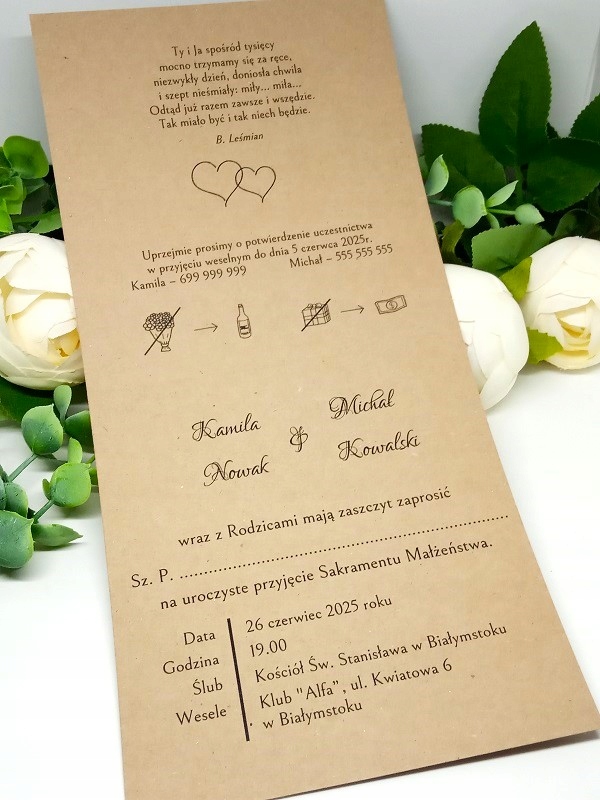 Ty i Ja spośród tysięcy
mocno trzymamy się za ręce,
niezwykły dzień, doniosła chwila
i szept nieśmiały: miły... miła...
Odtąd już razem zawsze i wszędzie.
Tak miało być i tak niech będzie.
B. Leśmian
Uprzejmie prosimy o potwierdzenie uczestnictwa
w przyjęciu weselnym do dnia 5 czerwca 2025r.
Kamila – 699 999 999 Michał – 555 555 555
Kamila Michał
&
Nowak Kowalski
wraz z Rodzicami mają zaszczyt zaprosić
Sz. P. ........................................................
na uroczyste przyjęcie Sakramentu Małżeństwa.
Data 26 czerwiec 2025 roku
Godzina 19.00
Ślub Kościół Św. Stanisława w Białymstoku
Wesele Klub "Alfa", ul. Kwiatowa 6
w Białymstoku